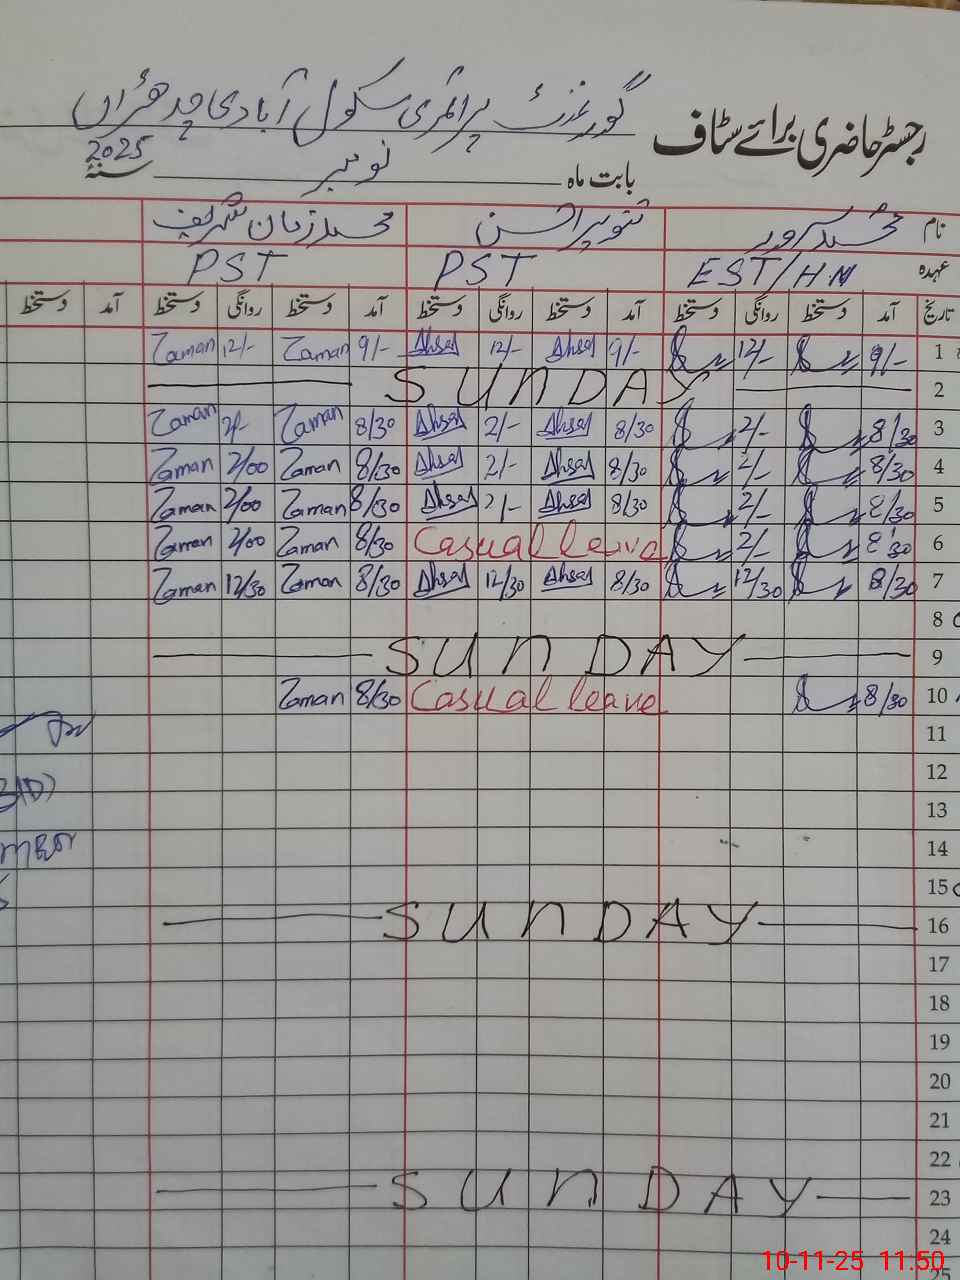 گورنمنٹ پرائمری سکول آبادی چدھڑاں
رجسٹر حاضری برائے سٹاف
بابت ماہ نومبر سنۂ 2025
نام محمد سرور تنویر احسن محمد زمان شریف
عہدہ EST/HM PST PST
تاریخ آمد دستخط روانگی دستخط آمد دستخط روانگی دستخط آمد دستخط روانگی دستخط آمد دستخط
1 9/- 12/- 9/- Ahsan 12/- Ahsan 9/- Zaman 12/- Zaman
2 SUNDAY
3 8/30 2/- 8/30 Ahsan 2/- Ahsan 8/30 Zaman 2/- Zaman
4 8/30 2/- 8/30 Ahsan 2/- Ahsan 8/30 Zaman 2/00 Zaman
5 8/30 2/- 8/30 Ahsan 2/- Ahsan 8/30 Zaman 2/00 Zaman
6 8/30 2/- Casual leave 8/30 Zaman 2/00 Zaman
7 8/30 12/30 8/30 Ahsan 12/30 Ahsan 8/30 Zaman 12/30 Zaman
8
9 SUNDAY
10 8/30 Casual leave 8/30 Zaman
11
12
13
14
15
16 SUNDAY
17
18
19
20
21
22
23 SUNDAY
24
25
10-11-25 11:50